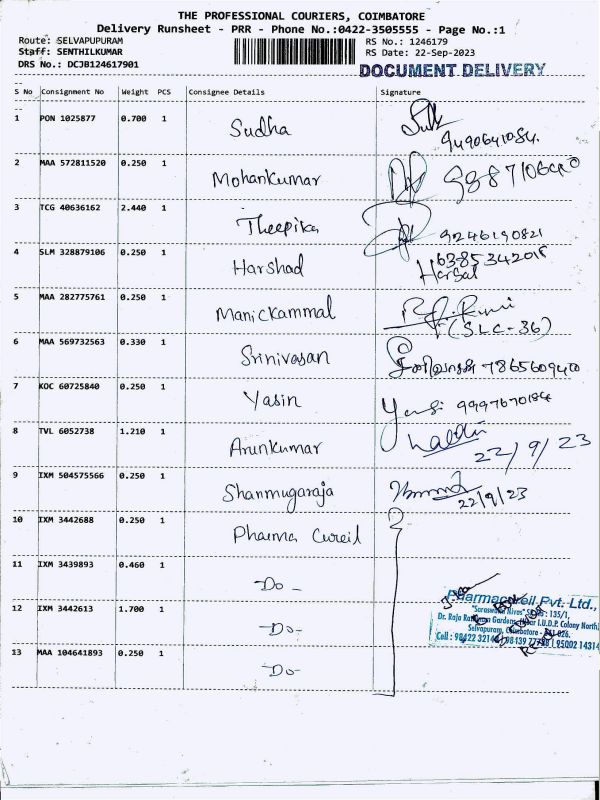 THE PROFESSIONAL COURIERS, COIMBATORE
Delivery Runsheet - PRR - Phone No.:0422-3505555 - Page No.:1
Route: SELVAPUPURAM RS No.: 1246179
Staff: SENTHILKUMAR RS Date: 22-Sep-2023
DRS No.: DCJB124617901 DOCUMENT DELIVERY
S No Consignment No Weight PCS Consignee Details Signature
1 PON 1025877 0.700 1 Sudha
2 MAA 572811520 0.250 1 Mohankumar
3 TCG 40636162 2.440 1 Theepika 9246190821
4 SLM 328879106 0.250 1 Harshad
5 MAA 282775761 0.250 1 Manickammal (SLC-36)
6 MAA 569732563 0.330 1 Srinivasan 7865609400
7 KOC 60725840 0.250 1 Yasin 9997670184
8 TVL 6052738 1.210 1 Arunkumar 22/9/23
9 IXM 504575566 0.250 1 Shanmugaraja 22/9/23
10 IXM 3442688 0.250 1 Pharma Cureil
11 IXM 3439893 0.460 1 Do-
12 IXM 3442613 1.700 1 Do-
13 MAA 104641893 0.250 1 Do-
Pvt. Ltd.,
135/1,
Dr. Raja Gardens, I.U.D.P. Colony North
Selvapuram, Coimbatore
Cell : 98422 95002 14314